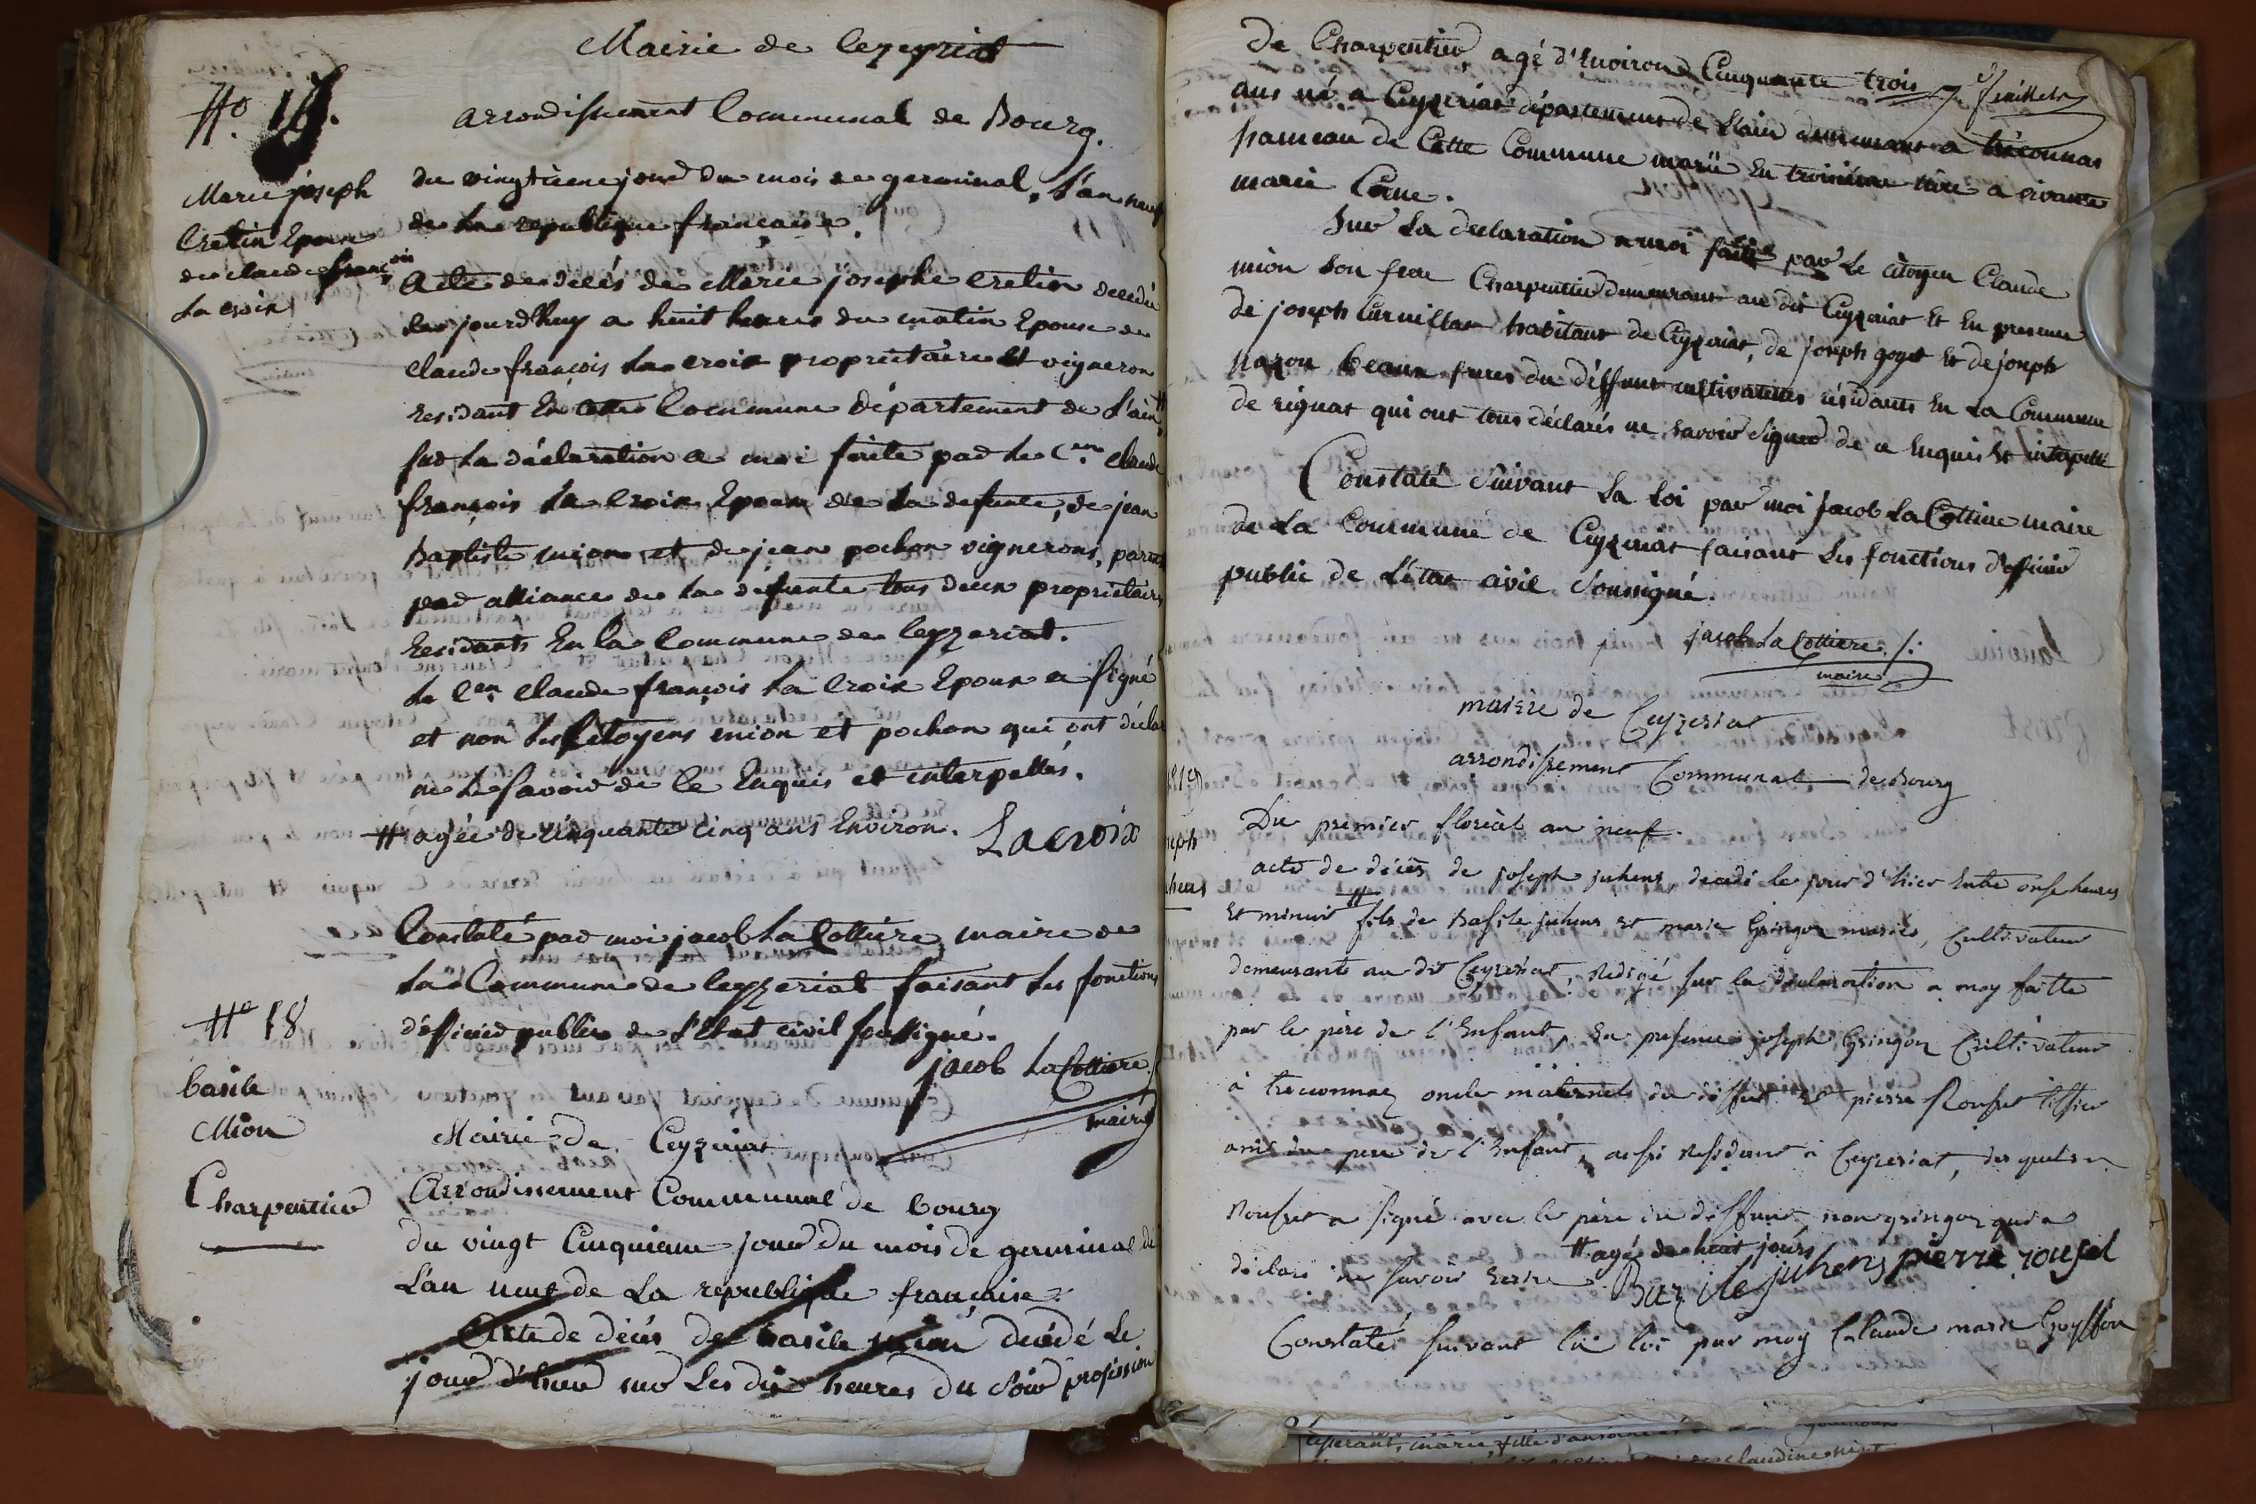 Mairie de Ceyzeriat
arrondissement Communal de Bourg.
No.
Marie joseph
Cretin Epouse
de claude françois
La croix
du vingtieme jour du mois de germinal, l'an neuf
de la republique francaise.
Acte de décés de Marie josephe Cretin decedée
jourdhuy a huit heures du matin Epouse de
claude françois La croix propriétaire et vigneron
residant En cette Commune département de L'ain, #
sur La déclaration a moi faite par le Cen. claude
françois La Croix Epoux de la defunte, de jean
Baptiste mion et de jean pochon vignerons, parents
par alliance de la defunte tous deux propriétaires
Residants En la Commune de Ceyzeriat.
Le Cen claude françois La Croix Epoux a signé
et non les Citoyens mion et pochon qui ont déclaré
ne le savoir de ce Enquis et interpellés.
# agée de cinquante cinq ans Environ. Lacroix
Constaté par moi jacob La Cottiére maire de
la Commune de Ceyzeriat faisant les fonctions
d'officier public de l'Etat civil soussigné.
jacob La Cottiere
maire
No 18
basile
Mion
Charpentier
Mairie de Ceyzeriat
Arrondissement Communal de bourg
du vingt Cinquieme jour du mois de germinal de
L'an neuf de La republique française.
Acte de décés de basile mion decédé Le
jour d'hier sur Les dix heures du soir profession
De Charpentier agé d'Environ Cinquante trois 7e feuillet
ans né a Ceyzeriat département de L'ain demeurant a tréconnas
hameau de Cette Commune marié En troisieme a vivante
marie Come.
Sur La declaration a moi faite par Le citoyen Claude
mion son frere Charpentier demeurant au dit Ceyzeriat Et En presence
de joseph Curnillat habitant de Ceyzeriat, de joseph goyet Et de joseph
nazou beaux freres du déffunt cultivateurs résidants En La Commune
de rignat qui ont tous déclarés ne savoir signer de ce Enquis Et interpellé
Constaté suivant La Loi par moi jacob La Cottiere maire
de La Commune de Ceyzeriat faisant Les fonctions d'officier
public de L'etat civil soussigné.
jacob La Cottiere
maire
mairie de Ceyzeriat
arrondissement Communal de Bourg
Du premier floréal an neuf.
acte de décès de joseph juhens décedé le jour d'hier Entre onse heures
Et minuit # fils de Basile juhens et marie Gringoz mariés, Cultivateur
demeurants au dit Ceyzeriat, Redigé sur la déclaration a moy faitte
par le père de l'Enfant, En presence joseph Gringoz Cultivateur
à treconnaz oncle maternel du déffunt et pierre Rousset tissier
ami du pere de l'Enfant, aussi Residant à Ceyzeriat, des quels
Rousset a signé avec le père du déffunt, non gringoz qui a
déclaré ne savoir Ecrire # agé de huit jours
Bazile juhens pierre rousel
Constaté suivant la loi par moy Claude marie Goyffon